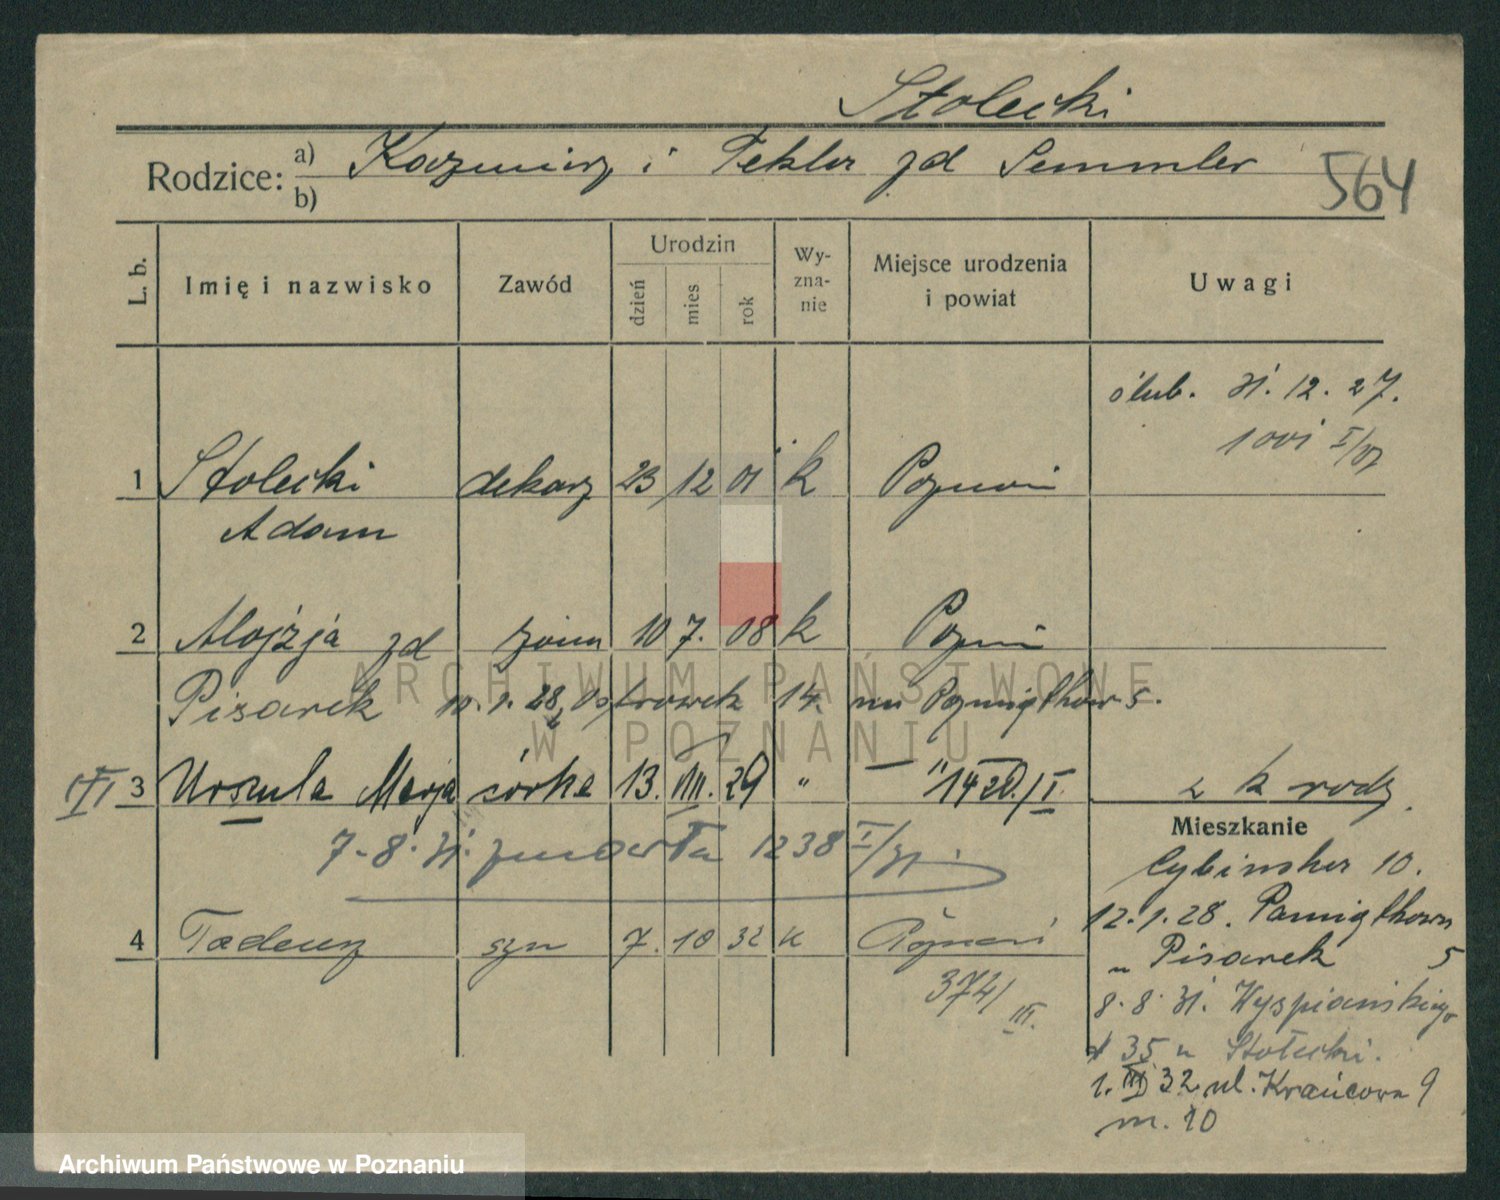 Stolecki
Rodzice: a) Kazmierz i Tekla zd Semmler
b)
564
L. b. Imię i nazwisko Zawód Urodzin dzień mies rok Wy-zna-nie Miejsce urodzenia i powiat Uwagi
ślub. 31.12.27.
1001 I/07
1 Stolecki dekarz 23 12 01 k Poznań
Adam
2 Alojzja zd żona 10 7. 08 k Pozn
Pisarek 10.1.28 Ostrówek 14. na Pamiątkowa 5.
VI 3 Urszula Marja córka 13. VII. 29 " — " 1420/I z k rodz.
7-8.31. zmarła 1238 I/31
4 Tadeusz syn 7. 10 32 k Poznań
374/III.
Mieszkanie
Cybińska 10.
12.1.28. Pamiątkowa
u Pisarek 5
8.8.31. Wyspiańskiego
35 u Stolecki.
1. III 32 ul. Krańcowa 9
m. 10
ARCHIWUM PAŃSTWOWE
W POZNANIU
Archiwum Państwowe w Poznaniu